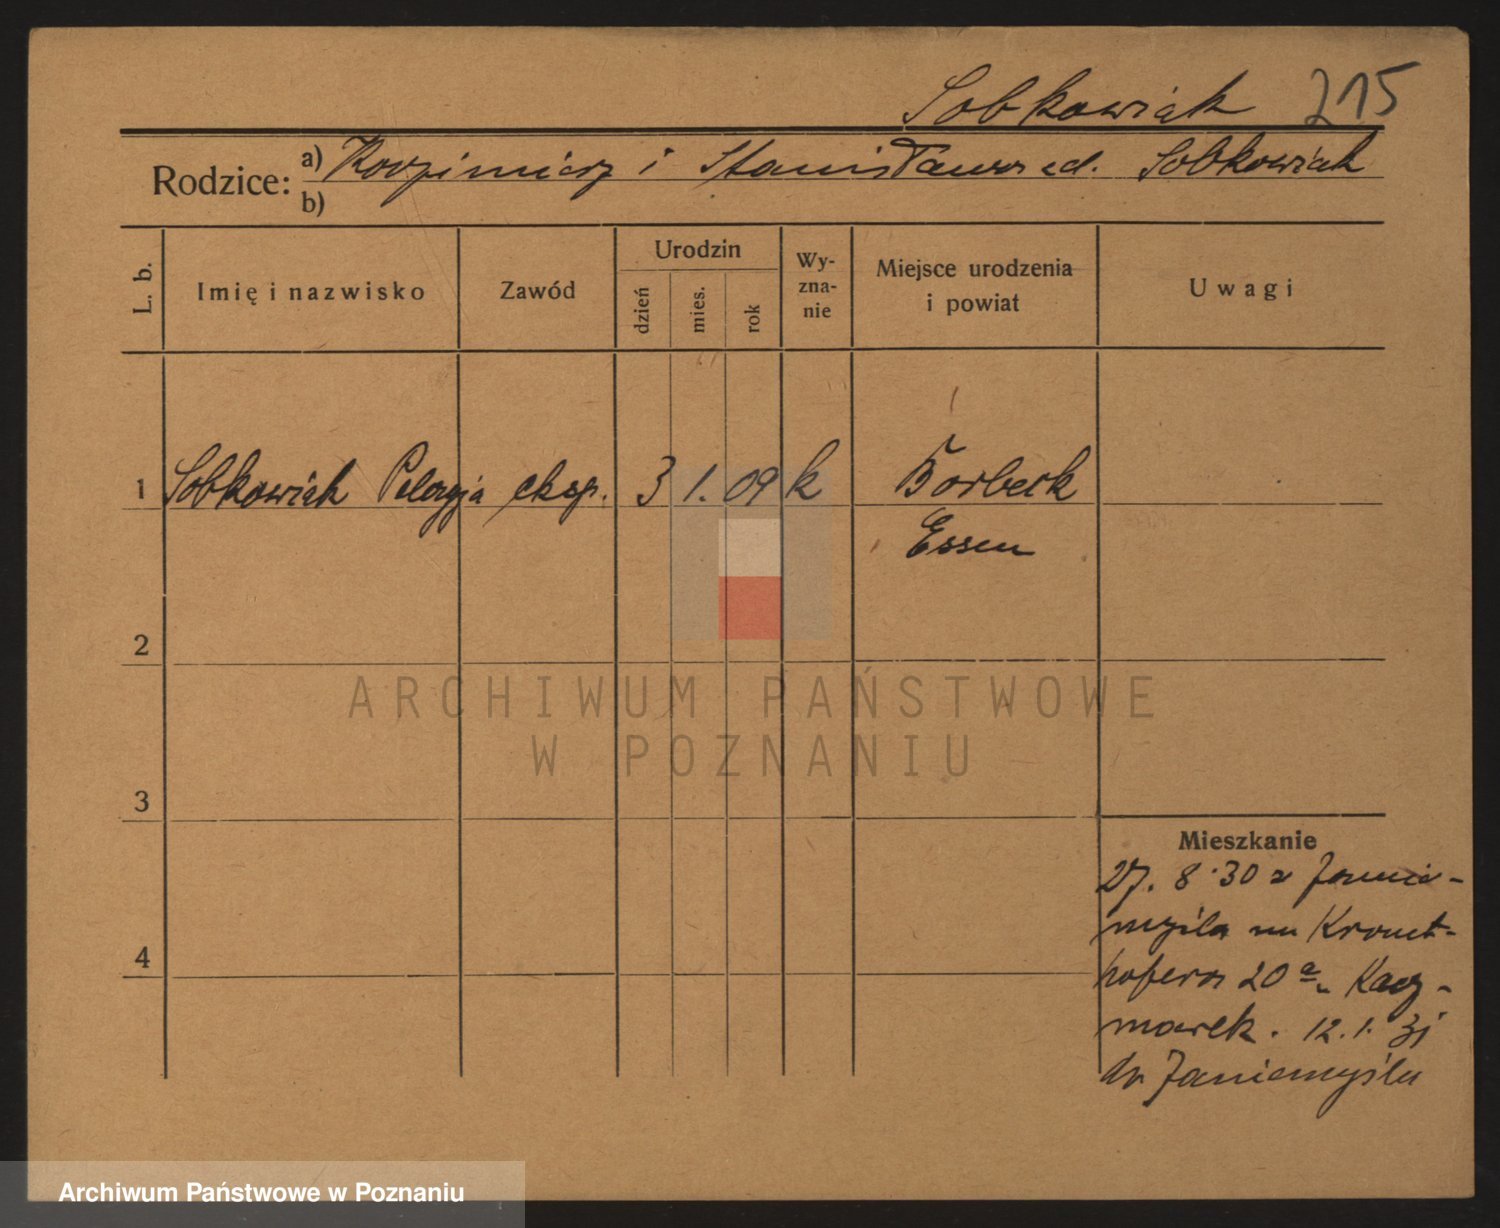 Sobkowiak 215
Rodzice: a) Kazimierz i Stanisława z d. Sobkowiak
b)
L. b.
Imię i nazwisko
Zawód
Urodzin
dzień
mies.
rok
Wy-
zna-
nie
Miejsce urodzenia
i powiat
Uwagi
1 Sobkowiak Pelagja eksp. 3 1. 09 k Borbeck
Essen
2
ARCHIWUM PAŃSTWOWE
W POZNANIU
3
Mieszkanie
27. 8. 30 z Janie-
myśla na Kromt-
hofera 20 a u Kacz-
4
marek. 12. 1. 31
do Zaniemyśla
Archiwum Państwowe w Poznaniu